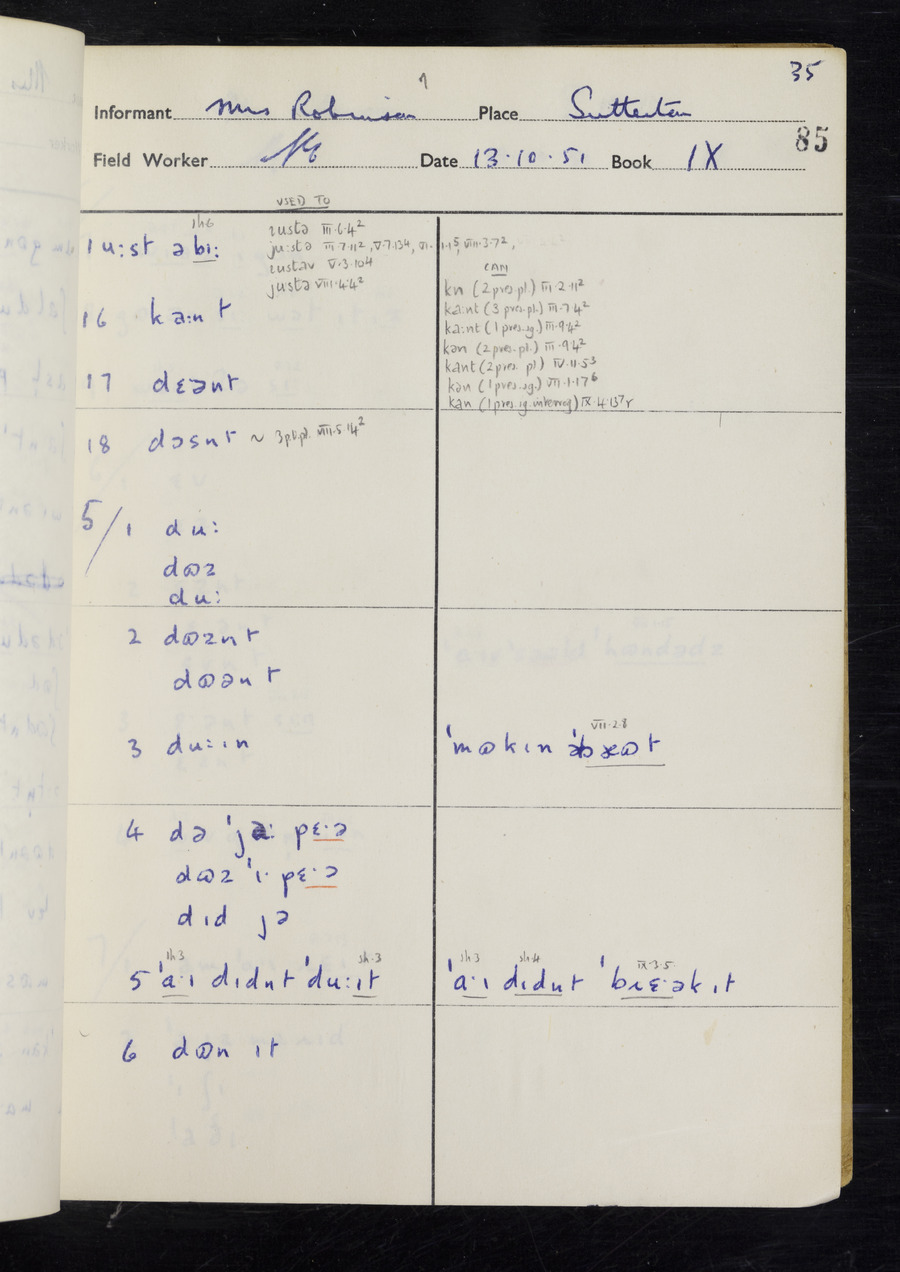 35
Informant Mrs Robinson Place Sutterton
85
Field Worker Date 13·10·51 Book IX
USED TO
sh6
ɪuːst ə biː
ɪustə III·6·4²
juːstə III·7·11², V·7·13⁴, VI·1·1⁵, VIII·3·7²,
V·3·10⁴
justə VIII·4·4²
CAN
kn (2 pres. pl.) III·2·11²
16 kaːnt
kaːnt (3 pres. pl.) III·7·4²
kaːnt (1 pres. sg.) III·9·4²
kən (2 pres. pl.) III·9·4²
kant (2 pres. pl) IV·11·5³
17 dɛənt
kən (1 pres. sg.) VII·1·17⁶
kan (1 pres. sg. interrog) IX·4·13⁷r
18 dəsnt ~ VIII·5·14²
5/1 duː
dɷz
duː
2 dɷznt
dɷənt
3 duːɪn
VII·2·8
ˈmɷkɪn
4 də ˈjəː pɛ·ə
dɷz ˈɪ· pɛ·ə
dɪd jə
sh 3 sh·3
5 ˈa·ɪ dɪdnt ˈduːɪt
sh 3 sh·4 IX·3·5
ˈa·ɪ dɪdnt ˈbɹɛ·əkɪt
6 dɷn ɪt